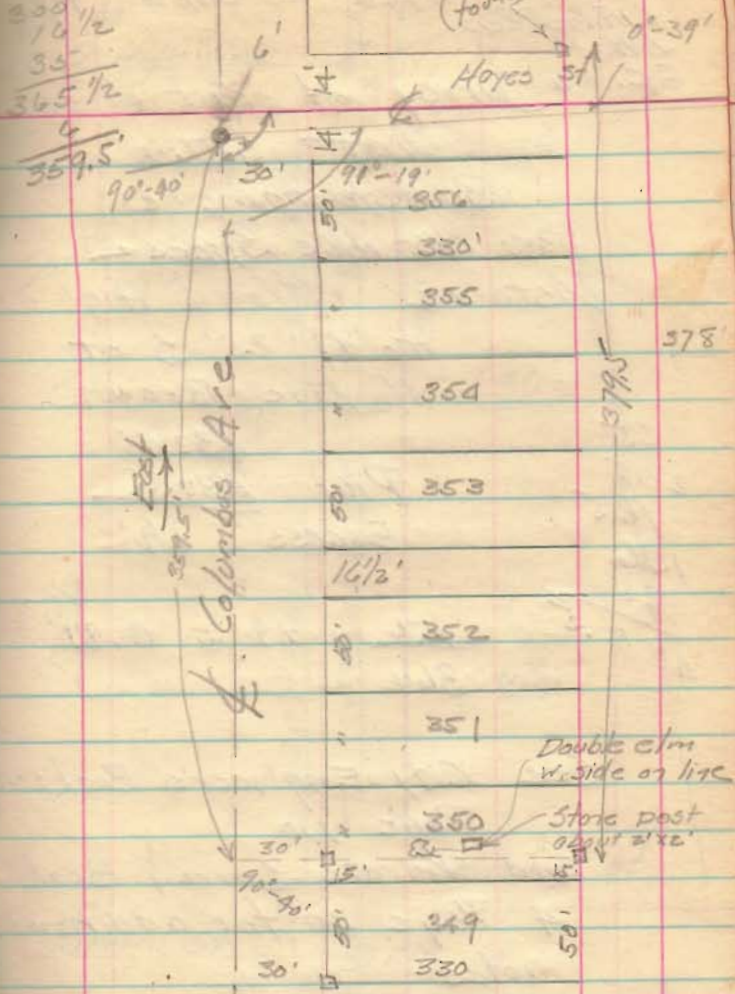 300
16 1/2
35
365 1/2
6
359.5'
(foun
6'
0°-39'
14'
Hayes St
℄
14'
90°-40'
30'
91°-19'
50'
356
330'
355
"
378'
354
"
379.5
East
359.5'
℄ Columbus Ave
353
50'
16 1/2'
352
50'
351
"
Double elm
W. side on line
350
"
Stone post
about 2'x2'
30'
15'
15'
90°-40'
349
50'
50'
30'
330